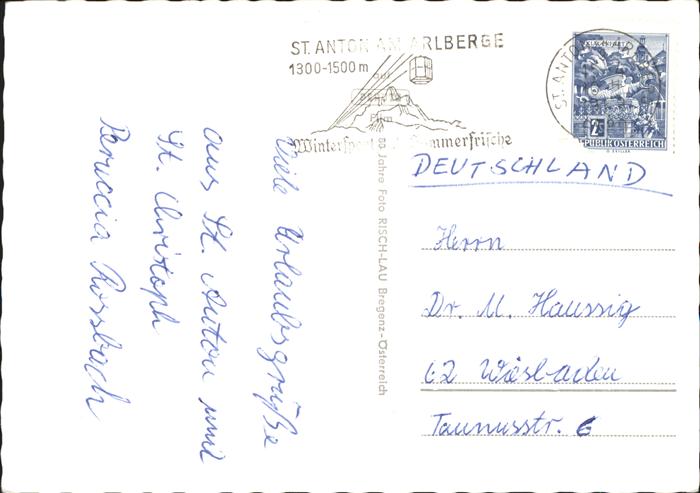 ST. ANTON AM ARLBERGE
1300-1500 m
Wintersport Sommerfrische
ST. ANTON
2S
REPUBLIK ÖSTERREICH
DEUTSCHLAND
Herrn
Dr. M. Haussig
62 Wiesbaden
Taunusstr. 6
Jahre Foto RISCH-LAU Bregenz-Österreich
Viele Urlaubsgrüße
aus St. Anton und
St. Christoph
Rossbach